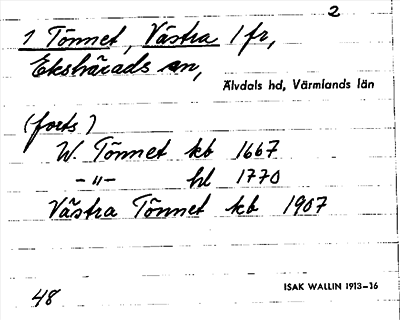 2
1 Tönnet, Västra 1 fr,
Ekshärads sn,
Älvdals hd, Värmlands län
(forts)
W. Tönnet kb 1667
-"- hl 1770
Västra Tönnet kb 1907
48
ISAK WALLIN 1913-16